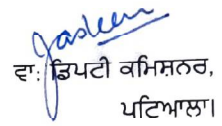 Jasleen
ਵਾ: ਡਿਪਟੀ ਕਮਿਸ਼ਨਰ,
ਪਟਿਆਲਾ।